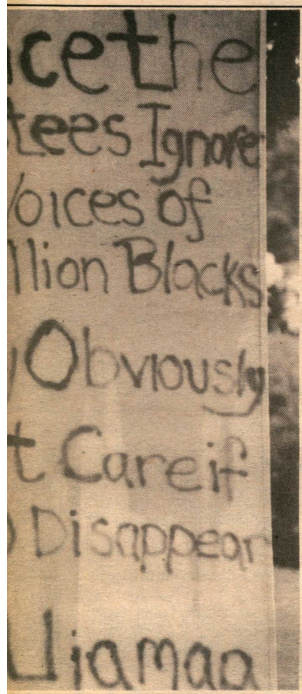 ce the
tees Ignore
Voices of
llion Blacks
Obviously
t Care if
Disappear
Ujamaa